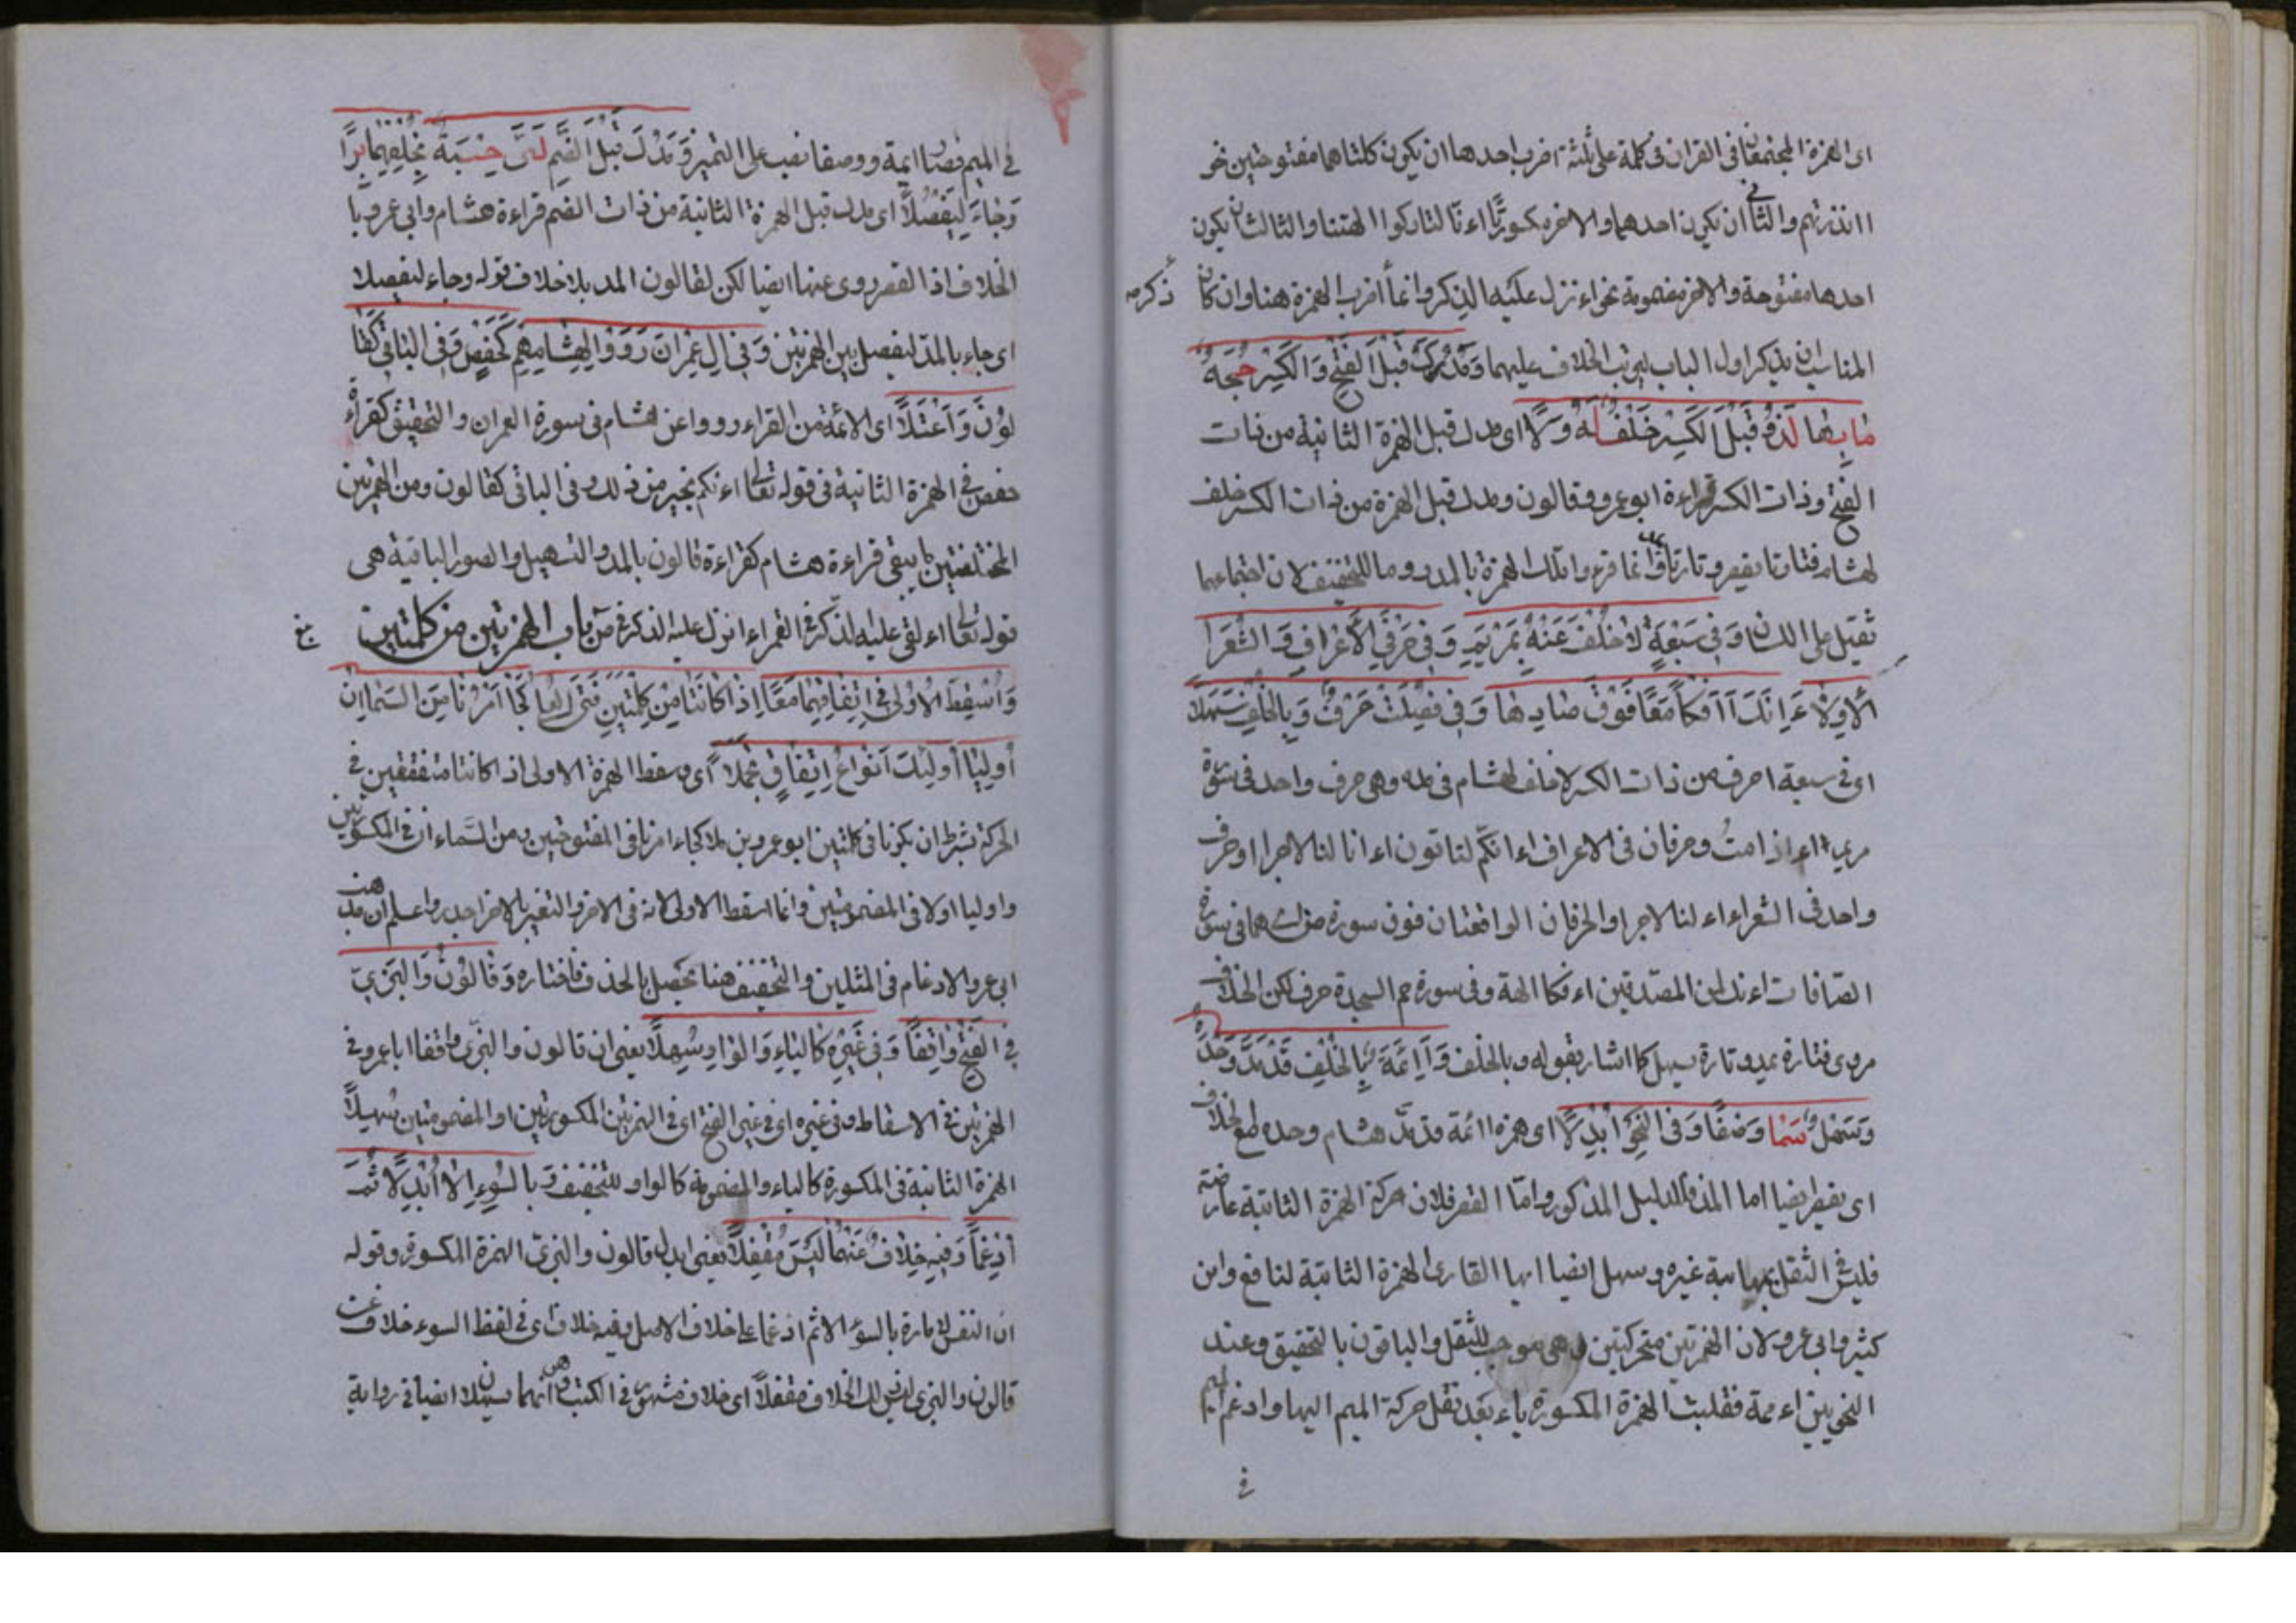 اى الهمزة المجتمعتان فى القران فى كلمة على ثلثة اضرب احدها ان يكون كلتاهما مفتوحتين نحو
ءانذرتهم والثانى ان يكون احدهما والاخر مكسورًا اءنا لتاركوا الهتنا والثالث ان يكون
احدها مفتوحة والاخر مضمومة نحو اءنزل عليه الذكر وانما اضرب الهمزة هنا وان كان ذكره
المناسب ان يذكر اول الباب ليرتب الخلاف عليهما وَمَدُّكَ قَبْلَ الْفَتْحِ وَالْكَسْرِ حُجَةٌ
بِهَا لُذْ وَقَبْلَ الْكَسْرِ خُلْفٌ لَهُ وَلَا اى مدك قبل الهمزة الثانية من ذات
الفتح وذات الكسر قراءة ابو عمرو وقالون ومدك قبل الهمزة من ذات الكسر خلف
لهشام فتارة يقصر وتارة وانما قرءوا تلك الهمزة بالمد روما للتخفيف لان اجتماعهما
ثقيل على اللسان وَفِى سَبْعَةٍ لَا خُلْفَ عَنْهُ بِمَرْيَمِ وَفِى حَرْفَىِ الْأَعْرَافِ وَالشُّعَرَا
الْأُولَا ءَاِنَّكَ آاِفْكًا مَعًا فَوْقَ صَادِهَا وَفِى فُصِّلَتْ حَرْفٌ وَبِالْخُلْفِ سَهَّلَا
اى فى سبعة احرف من ذات الكسر لا خلف لهشام فى مده وهى حرف واحد فى سورة
مريم اءذا مت وحرفان فى الاعراف اءانكم لتاتون اءانا لنا لاجرا وحرف
واحد فى الشعراء اءن لنا لاجرا والحرفان الواقعتان فوق سورة ص هما فى سورة
الصافات اءنك لمن المصدقين اءفكا الهة وفى سورة حم السجدة حرف لكن الخلاف
مروى فتارة يمد وتارة يسهل كما اشار بقوله وبالخلف وَآاِمَّةً بِالْخُلْفِ قَدْ مَدَّ وَحْدَهُ
وَسَهِّلْ سَمَا وَصْفًا وَفِى النَّحْوِ اُبْدِلَا اى همزة ائمة قد مد هشام وحده مع خلاف
اى يقصر ايضا اما المد فللدليل المذكور وامّا القصر فلان حركة الهمزة الثانية عارضة
فليس فى الثقل بمثابة غيره وسهل ايضا ايها القارى الهمزة الثانية لنافع وابن
كثير وابى عمرو لان الهمزتين متحركتين وهى موجب للثقل والباقون بالتحقيق وعند
النحويين اءممة فقلبت الهمزة المكسورة ياء بعد نقل حركة الميم اليها وادغم الميم
فى
فى الميم فصار ايمة ووصفا نصب على التميز وَمَدُّكَ قَبْلَ الضَّمِّ لَبَّى حَبِيبَهُ بِخُلْفِهِمَا بَرًّا
وَجَاءَ لِيَفْصُلًا اى مدك قبل الهمزة الثانية من ذات الضم قراءة هشام وابى عمرو با
الخلاف اذ القصر روى عنها ايضا لكن لقالون المد بلا خلاف قوله وجاء ليفصلا
اى جاء بالمد ليفصل بين الهمزتين وَفِى آلِ عِمْرَانَ رَوَوْا لِهِشَامِهِمْ كَحَفْصٍ وَفِى الْبَاقِى كَقَا
لُونَ وَاعْتَلَا اى الائمة من القراء رووا عن هشام فى سورة ال عمران والتحقيق كقراءة
حفص فى الهمزة الثانية فى قوله تعالى اءنبكم بخير من ذلك وفى الباقى كقالون ومن الهمزتين
المختلفتين ما يبقى قراءة هشام كقراءة قالون بالمد والتسهيل والصور الباقية هى
قوله تعالى اءلقى عليه الذكر فى القمر اءانزل عليه الذكر فى ص باب الهمزتين من كلمتين
وَاَسْقَطَ الْاُوْلَى فِى اتِّفَاقِهِمَا مَعًا اِذَا كَانَتَا مِنْ كِلْمَتَيْنِ فَتَى الْعُلَا كَجَا اَمْرُنَا مِنَ السَّمَا اِنَّ
اَوْلِيَا اُولٰئِكَ اَنْوَاعُ اِتِّفَاقٍ تَجَمَّلَا اى وسقط الهمزة الاولى اذا كانتا متفقتين فى
الحركة بشرط ان يكونا فى كلمتين ابو عمرو بن علا كجاء امرنا فى المفتوحتين ومن السّماء ان فى المكسورتين
واوليا اولا فى المضمومتين وانما اسقط الاولى لانه فى الاخر والتغير بالاخر اجدر واعلم ان مذهب
ابى عمرو الادغام فى المثلين والتخفيف هنا يحصل بالحذف فاختاره وَقَالُونُ وَالْبَزِىُّ
فِى الْفَتْحِ وَافَقَا وَفِى غَيْرِهِ كَالْيَاءِ وَالْوَاوِ سَهَّلَا يعنى ان قالون والبزى وافقا ابا عمرو فى
الهمزتين فى الاسقاط وفى غيره اى فى غير الفتح اى فى الهمزتين المكسورتين او المضمومتين تسهيلا
الهمزة الثانية فى المكسورة كالياء والمضمومة كالواو للتخفيف وَبِالسُّوءِ اِلَّا اَبْدَلَا ثُمَّ
اَدْغَمَا وَفِيهِ خِلَافٌ عَنْهُمَا لَيْسَ مُقْفَلًا يعنى ابدل قالون والبزى الهمزة المكسورة وقوله
ان النفس لامارة بالسوء الا ثم ادغما على خلاف الاصل وفيه خلاف اى فى لفظ السوء خلاف عن
قالون والبزى ليس ذلك الخلاف مقفلًا اى خلاف مشهور فى الكتب وهى انهما يسهلان ايضا فى رواية